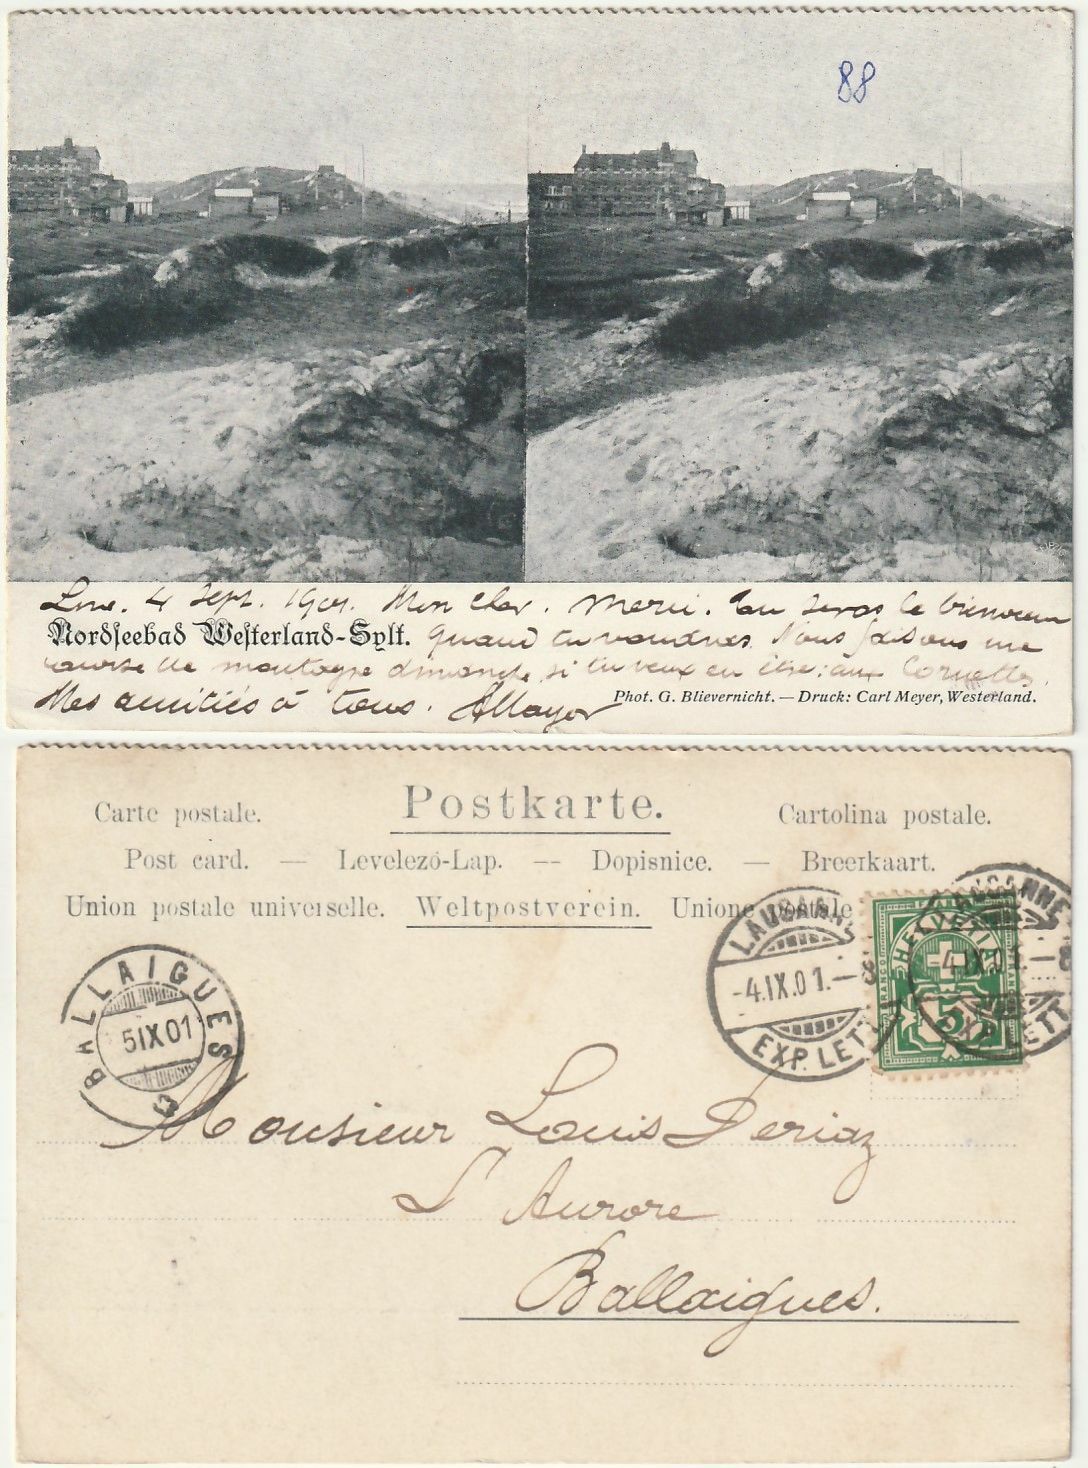 88
4 Sept. 1901. Mon cher. Merci. Tu seras le bienvenu
Nordseebad Westerland-Sylt. Quand tu voudras. Nous faisons une
course de montagne dimanche, si tu veux en être: aux Cornettes.
Mes amitiés à tous. AMayor
Phot. G. Blievernicht. — Druck: Carl Meyer, Westerland.
Postkarte.
Carte postale. Cartolina postale.
Post card. — Levelezö-Lap. — Dopisnice. — Breefkaart.
Union postale universelle. Weltpostverein. Unione postale
LAUSANNE
-4.IX.01.-8
EXP. LETT.
LAUSANNE
-4.IX.01.-8
EXP. LETT.
FRANCO
HELVETIA
5
BALLAIGUES
5 IX 01
Monsieur Louis Deriaz
L'Aurore
Ballaigues.